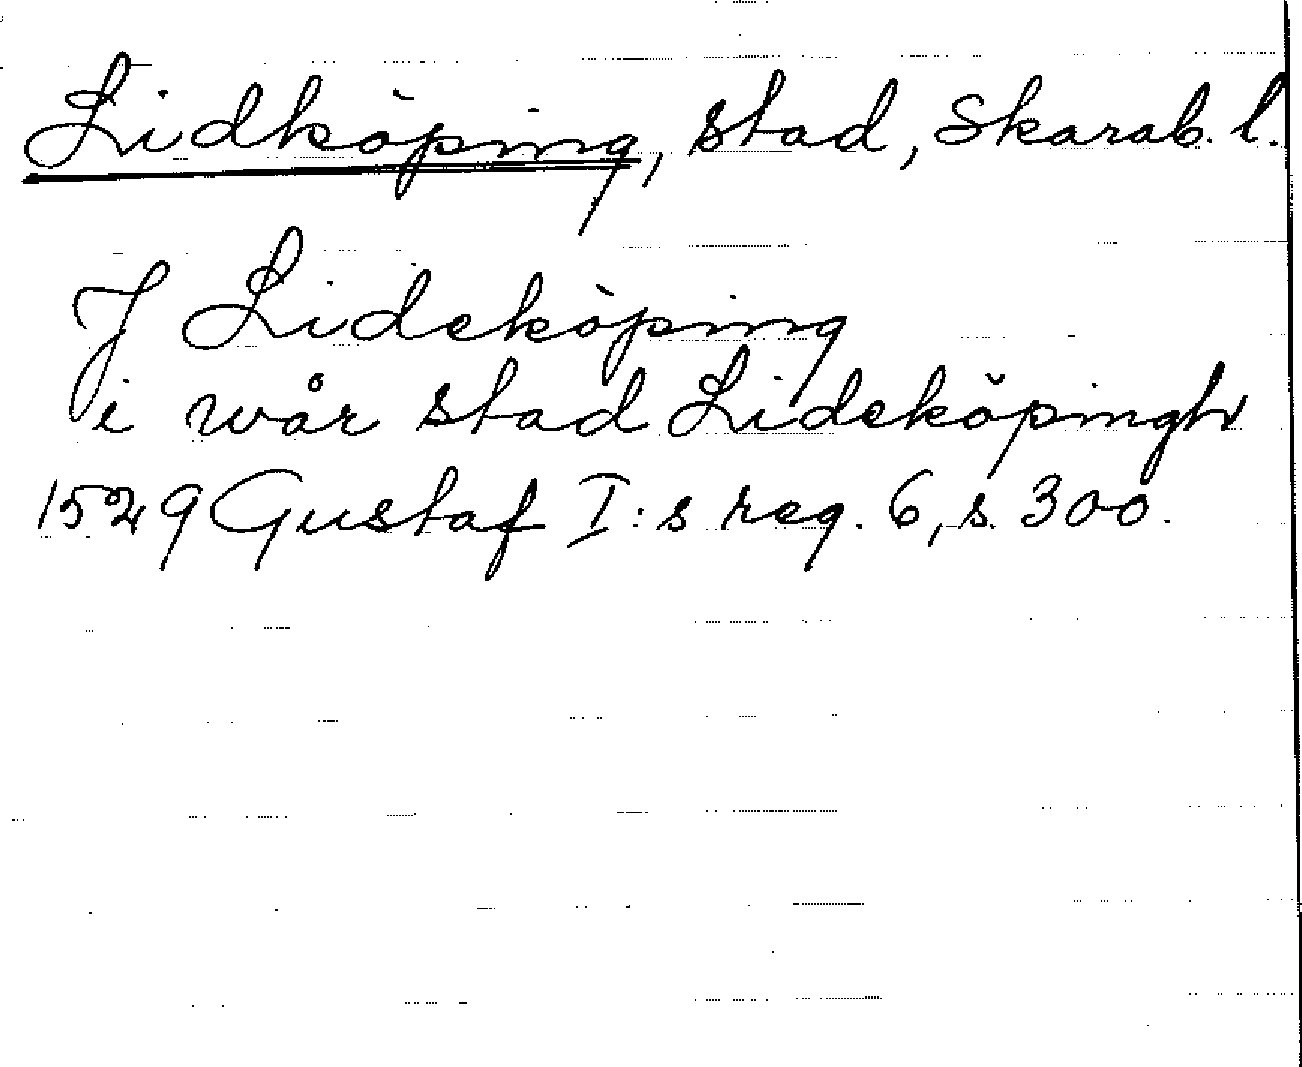 Lidköping, stad, Skarab. l.
J Lideköping
i wår stad Lideköpingh
1529 Gustaf I:s reg. 6, s. 300.